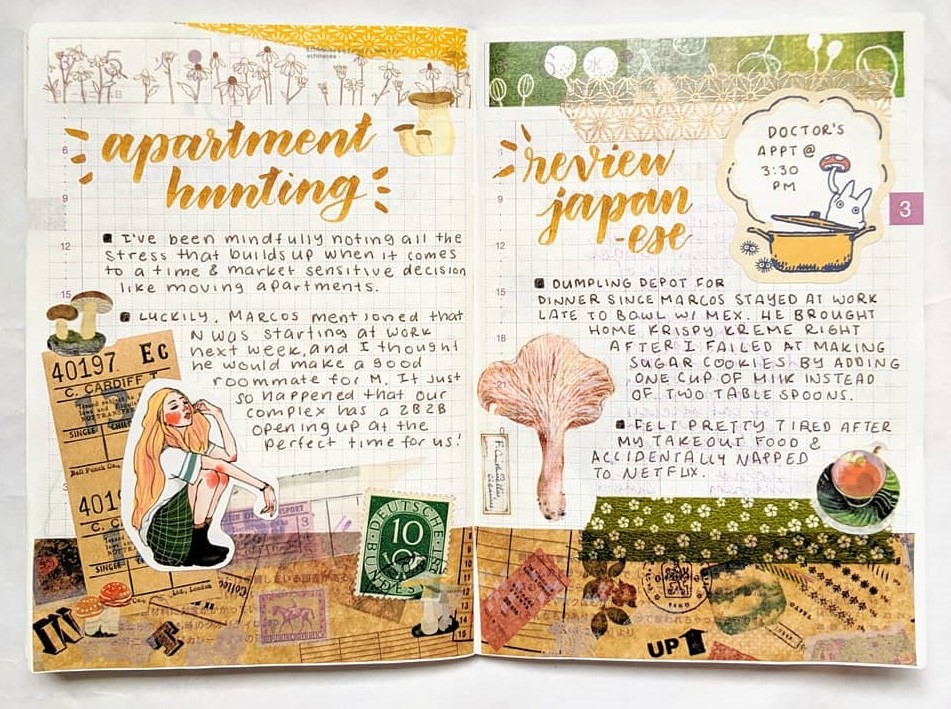 apartment
hunting
I've been mindfully noting all the
stress that builds up when it comes
to a time & market sensitive decision
like moving apartments.
LUCKILY, MARCOS mentioned that
N was starting at work
next week, and I thought
he would make a good
roommate for M. It just
so happened that our
complex has a 2B2B
opening up at the
perfect time for us!
6
9
12
15
40197 Ec
C. CARDIFF T
SINGLE
Bell Punch Co.,
401
C. C
SINGLE
DEUTSCHE
BUNDESPOST
10
IN
review
japan
-ese
DOCTOR'S
APPT @
3:30
PM
3
DUMPLING DEPOT FOR
DINNER SINCE MARCOS STAYED AT WORK
LATE TO BOWL W/ MEX. HE BROUGHT
HOME KRISPY KREME RIGHT
AFTER I FAILED AT MAKING
SUGAR COOKIES BY ADDING
ONE CUP OF MILK INSTEAD
OF TWO TABLESPOONS.
FELT PRETTY TIRED AFTER
MY TAKEOUT FOOD &
ACCIDENTALLY NAPPED
TO NETFLIX.
9
12
15
UP